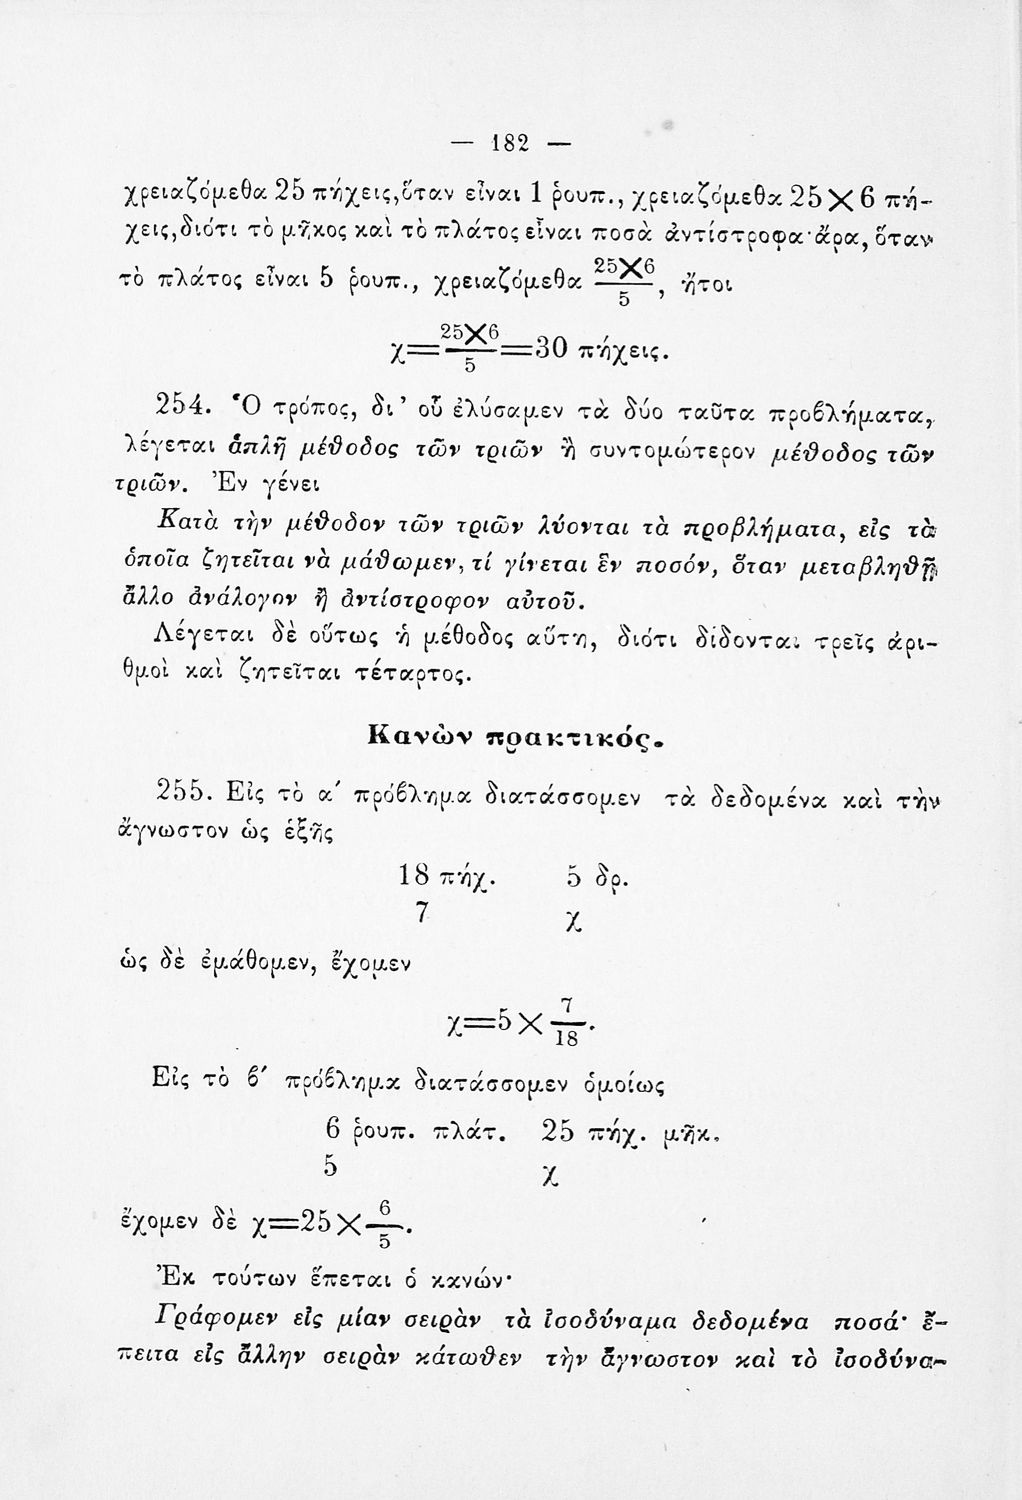 — 182 —
χρειαζόμεθα 25 πήχεις, ὅταν εἶναι 1 ῥουπ., χρειαζόμεθα 25 × 6 πή-
χεις, διότι τὸ μῆκος καὶ τὸ πλάτος εἶναι ποσὰ ἀντίστροφα· ἄρα, ὅταν
τὸ πλάτος εἶναι 5 ῥουπ., χρειαζόμεθα 25×6/5, ἤτοι
χ=25×6/5=30 πήχεις.
254. Ὁ τρόπος, δι' οὗ ἐλύσαμεν τὰ δύο ταῦτα προβλήματα,
λέγεται ἁπλῆ μέθοδος τῶν τριῶν ἢ συντομώτερον μέθοδος τῶν
τριῶν. Ἐν γένει
Κατὰ τὴν μέθοδον τῶν τριῶν λύονται τὰ προβλήματα, εἰς τὰ
ὁποῖα ζητεῖται νὰ μάθωμεν, τί γίνεται ἓν ποσόν, ὅταν μεταβληθῇ
ἄλλο ἀνάλογον ἢ ἀντίστροφον αὐτοῦ.
Λέγεται δὲ οὕτως ἡ μέθοδος αὕτη, διότι δίδονται τρεῖς ἀρι-
θμοὶ καὶ ζητεῖται τέταρτος.
Κανὼν πρακτικός.
255. Εἰς τὸ α' πρόβλημα διατάσσομεν τὰ δεδομένα καὶ τὴν
ἄγνωστον ὡς ἑξῆς
18 πήχ. 5 δρ.
7 χ
ὡς δὲ ἐμάθομεν, ἔχομεν
χ=5 × 7/18.
Εἰς τὸ β' πρόβλημα διατάσσομεν ὁμοίως
6 ῥουπ. πλάτ. 25 πήχ. μῆκ.
5 χ
ἔχομεν δὲ χ=25×6/5.
Ἐκ τούτων ἕπεται ὁ κανών·
Γράφομεν εἰς μίαν σειρὰν τὰ ἰσοδύναμα δεδομένα ποσά· ἔ-
πειτα εἰς ἄλλην σειρὰν κάτωθεν τὴν ἄγνωστον καὶ τὸ ἰσοδύνα-